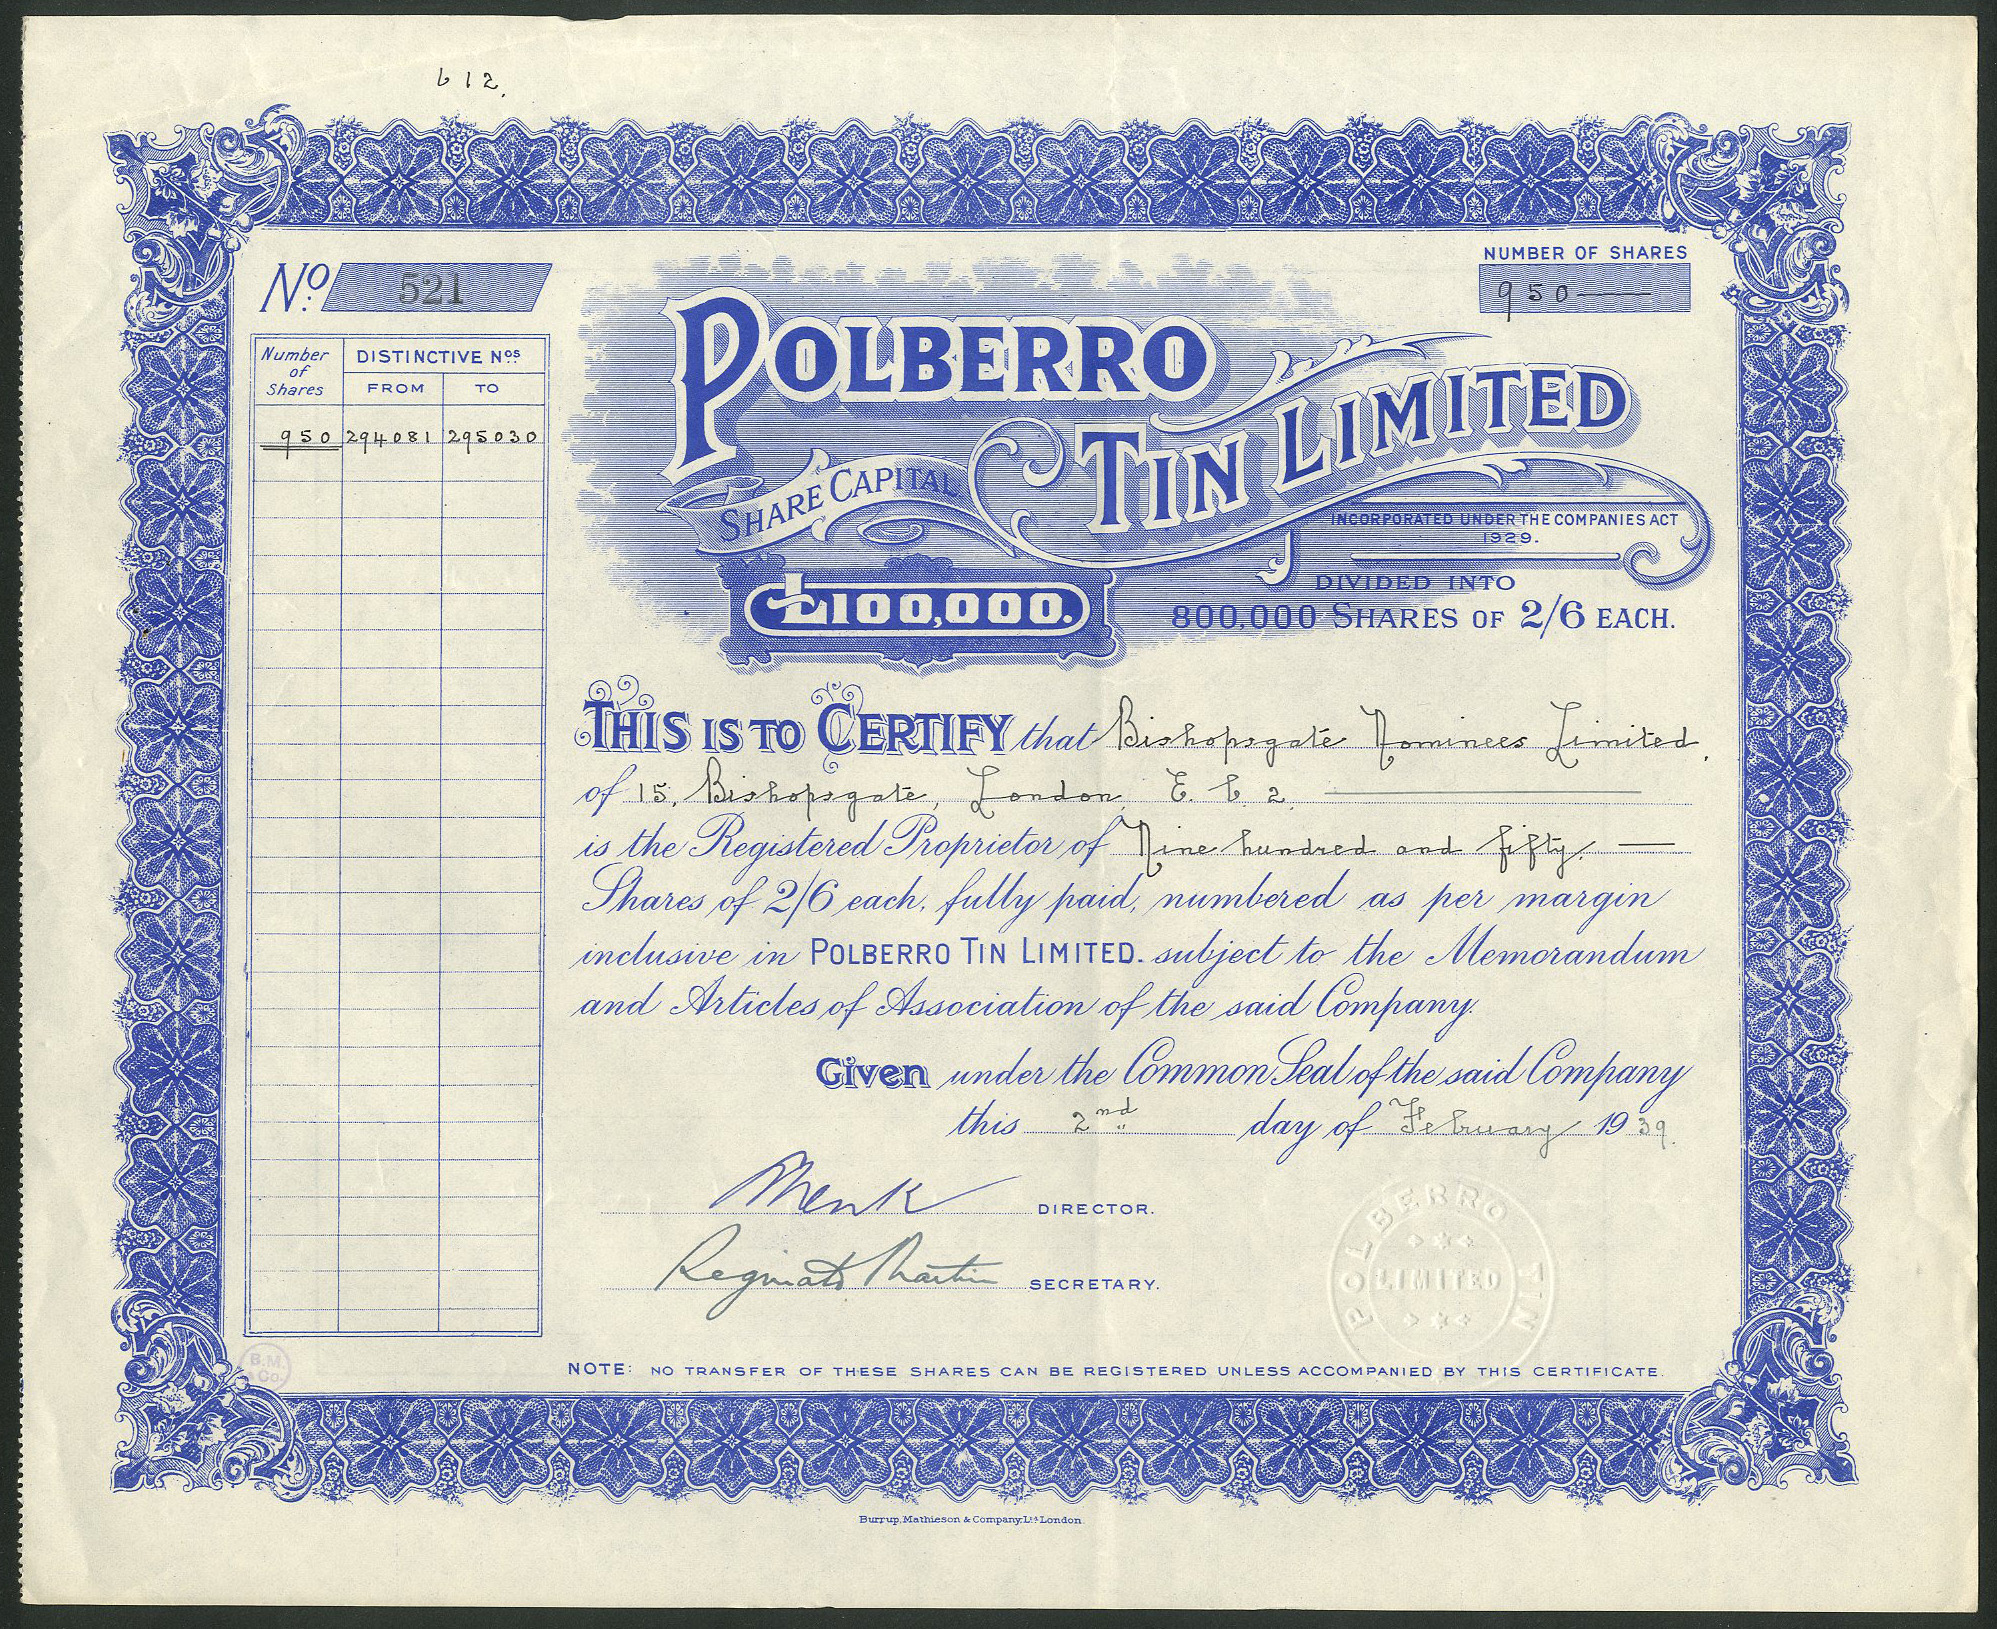 612.
No. 521
NUMBER OF SHARES
950
Number of Shares
DISTINCTIVE Nos
FROM TO
950 294081 295030
POLBERRO
TIN LIMITED
SHARE CAPITAL
£100,000.
INCORPORATED UNDER THE COMPANIES ACT
1929.
DIVIDED INTO
800,000 SHARES OF 2/6 EACH.
THIS IS TO CERTIFY that Bishopsgate Nominees Limited,
of 15, Bishopsgate, London, E. C 2.
is the Registered Proprietor of Nine hundred and fifty.
Shares of 2/6 each, fully paid, numbered as per margin
inclusive in POLBERRO TIN LIMITED. subject to the Memorandum
and Articles of Association of the said Company.
Given under the Common Seal of the said Company
this 2nd day of February 1939.
DIRECTOR.
Reginald Martin SECRETARY.
POLBERRO TIN
LIMITED
B.M. & Co.
NOTE: NO TRANSFER OF THESE SHARES CAN BE REGISTERED UNLESS ACCOMPANIED BY THIS CERTIFICATE.
Burrup, Mathieson & Company, Ltd London.